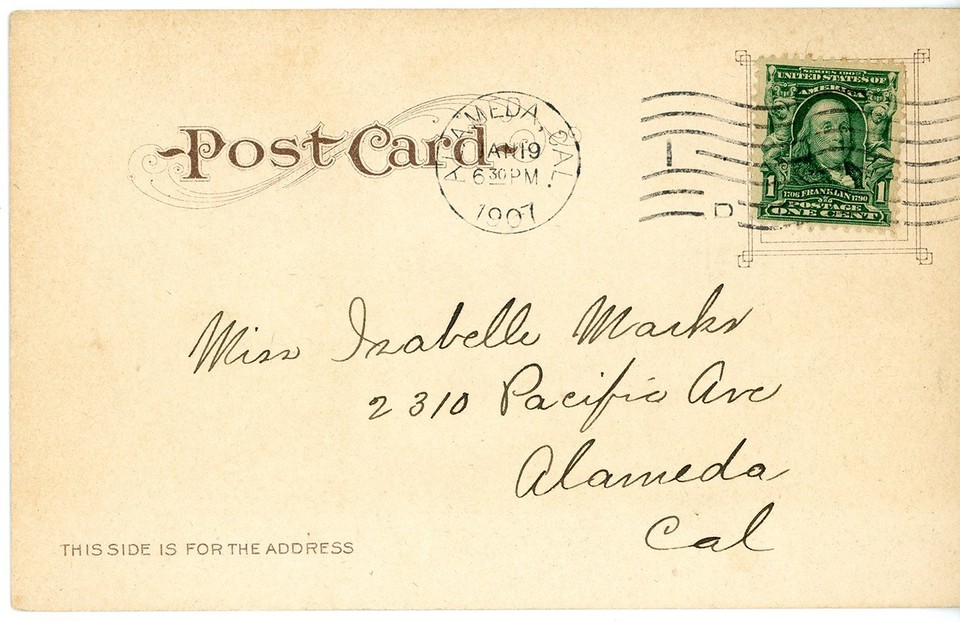 Post Card
ALAMEDA, CAL.
JAN 19
6 30 PM
1907
I
D
SERIES 1902
UNITED STATES OF
AMERICA
1 1
1706 FRANKLIN 1790
POSTAGE
ONE CENT
Miss Isabelle Marks
2310 Pacific Ave
Alameda
Cal
THIS SIDE IS FOR THE ADDRESS